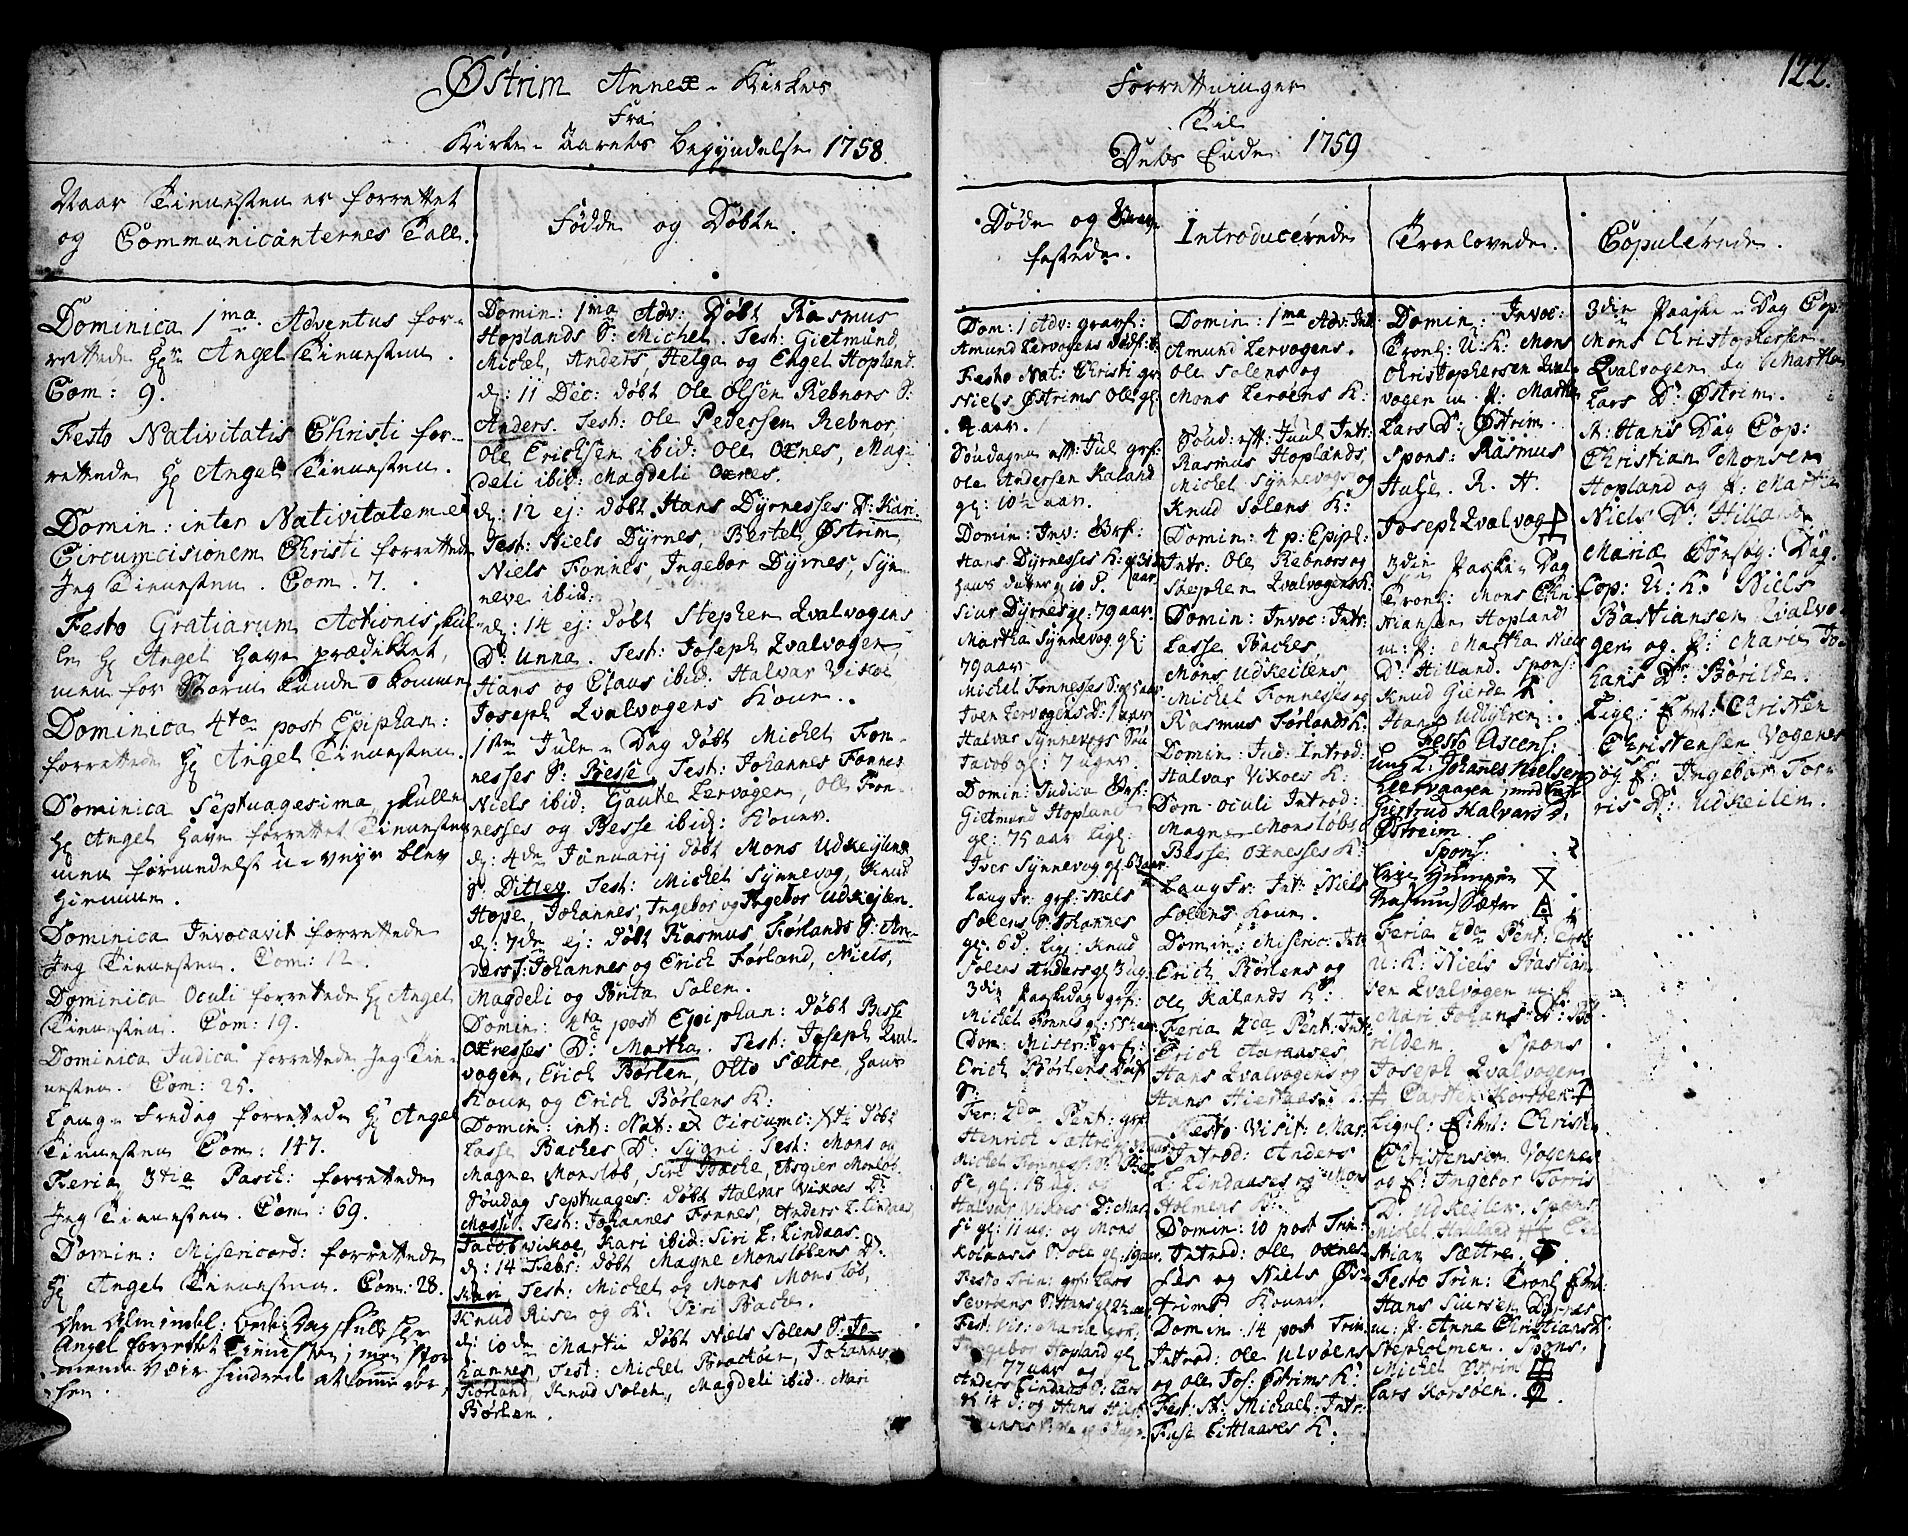 Østrim Annex-Kirkes
Fra
Kirke-Aarets Begÿndelse 1758.
Naar Tienesten er forrettet
og Communicanternes Tall.
Fødde og Døbte.
Dominica 1ma Adventus for-
rettede Hr Angel Tienesten.
Com: 9.
Festo Nativitatis Christi for-
rettede Hr Angel Tienesten.
Domin: inter Nativitatem et
Circumcisionem Christi forrettede
Jeg Tienesten. Com. 7.
Festo Gratiarum Actionis skul-
le Hr Angel have prædikket,
men for Storm kunde o komme
Dominica 4ta post Epiphan:
forrettede Hr Angel Tienesten.
Dominica Septuagesima skulle
Hr Angel have forrettet Tienesten
men formedelst u-veÿr blev
hiemme.
Dominica Invocavit forrettede
Jeg Tienesten. Com: 12.
Dominica Oculi forrettede Hr Angel
Tienesten. Com: 19.
Dominica Judica forrettede Jeg Tie-
nesten. Com: 25.
Lang-Fredag forrettede Hr Angel
Tienesten Com: 147.
Feria 3tia Pasch: forrettede
Jeg Tienesten. Com: 69.
Domin: Misericord: forrettede
Hr Angel Tienesten. Com: 28.
Den Almindel: bede Dag skulle Hr
Angel forrettet Tienesten; men
Veir hindrede at komme
Domin: 1ma Adv: Døbt Rasmus
Hoplands S: Michel. Test: Gietmund,
Michel, Anders, Helga og Engel Hopland.
d: 11 Dec: døbt Ole Olsen Rebnors S:
Anders. Test: Ole Pedersen Rebnor
Ole Erichsen ibid: Ole Oxnes, Mag-
deli ibid: Magdeli Oxnes.
d: 12 ej: døbt Hans Dÿrnesses D: Kari
Test: Niels Dÿrnes, Bertel Østrim,
Niels Fonnes, Ingebor Dÿrnes, Sÿn-
neve ibid:
d: 14 ej: døbt Stephen Qvalvogens
D: Unna. Test: Joseph Qvalvogen
Hans og Claus ibid: Halvar Vikøe
Joseph Qvalvogens Kone.
1ste Jule-Dag døbt Michel Fon-
nesses S: Besse. Test: Johannes Fonnes
Niels ibid: Gaute Lervogen, Ole Fon-
nesses og Besse ibid: Koner.
d: 4de Januarij døbt Mons Udkejlens
S: Ditlev. Test: Michel Sÿnnevog, Knud
Hope, Johannes, Ingebor og Ingebor Udkejlen.
d: 7de ej: døbt Rasmus Førlands S: An-
ders T: Johannes og Erich Førland, Niels,
Magdeli og Brita Solen.
Domin: 4ta post Epiphan: døbt Besse
Oxnesses D: Martha. Test: Joseph Qval-
vogen, Erich Børlen, Otto Sættre, Hans
Koun og Erich Børlens K:
Domin: int: Nat: et Circumc: Xti døbt
Lasse Baches D: Sygni Test: Mons og
Magne Monsløb, Siri Bache, Asgier Monsløb.
Søndag Septuages: døbt Halvar Vikøes D:
Massi. Test: Johannes Fonnes, Anders L. Lindaas
Jacob Vikøe, Kari ibid: Siri L. Lindaas.
d: 14 Febr: døbt Magne Monsløbens D:
Kari, Test: Michel og Mons Monsløb,
Knud Rise og K: Siri Bache.
d: 10de Martii døbt Niels Solens S: Jo-
hannes, Test: Michel Brochøen, Johannes
Førland, Knud Solen, Magdeli ibid. Mari
Børlen.
Forretninger
Til
Dets Ende 1759
122.
Døde og Grav-
festede.
Introducerede
Troelovede.
Copulerede.
Dom: 1 Adv: gravf:
Amund Lervogens dødf: B:
Festo Nat: Christi gr:
Niels Østrims Ole gl:
4 aar.
Søndagen eft: Jul grf:
Ole Andersen Kaland
gl: 10½ aar.
Domin: Inv: Grf:
Hans Dÿrnesses K: gl 31
aar
hans datter gl 10 d.
Siur Dÿrnes gl: 79 aar.
Martha Sÿnnevog gl:
79 aar.
Michel Fonnesses S: gl 5 aar
Iver Lervogens D: 1 aar
Halvar Sÿnnevogs Søn
Jacob gl: 7 uger.
Domin: Judica Grf:
Gietmund Hopland
gl: 75 aar lige:
Iver Sÿnnevog gl: 63 aar
Langfr: grf: Niels
Solens S: Johannes
gl: 6 d: lige: Knud
Solens Anders gl 3 ug.
3die Paaskedag grf:
Michel Fonnes gl: 55 aar
Dom: Miser: grf:
Erich Børlens Dødf:
S:
Fer: 2da Pent: grf:
Henrich Sættre
Michel Fonness: S: Bes-
se gl: 18 ug. og
Halvar Vikøes D: Mas-
si gl: 11 ug: og Mons
Koinaasis S: Ole gl: 19 aar.
Festo Trin: grf: Lars
Sevrøens S: Hans gl 2½ aar.
Fest: Vis: Mariæ grf:
Ingebor Hopland gl:
77 aar og
Anders Lindaas S: Lars
gl 14 d: og Hans Hiert-
Domin: 1ma Adv: Int:
Amund Lervogens.
Ole Solens og
Mons Lerøens K:
Sønd: eft: Juul Intr:
Rasmus Hoplands,
Michel Sÿnnevogs og
Knud Solens K:
Domin: 4 p: Epiph:
Intr: Ole Rebnors og
Stephen Qvalvogens K:
Domin: Invoc: Intr:
Lasse Baches,
Mons Udkeilens,
Michel Fonnesses og
Rasmus Førlands K:
Domin: Jud: Introd:
Halvar Vikøes K:
Dom: oculi Introd:
Magne Monsløbs
Besse Oxnesses K:
Langfr: Int: Niels
Solens Koun.
Domin: Miseric: Int:
Erich Børlens og
Ole Kalands K:
Feria 2da Pent: Intr:
Erich Aaraases,
Hans Qvalvogens og
Hans Hiertaas:
Festo Visit: Mar:
Introd: Anders
L: Lindaases og Mons
Holmens K:
Domin: 10 post Trin:
Introd: Ole Oxnes-
ses og Niels Øs-
trims Koner.
Domin: 14 post Trin:
Introd: Ole Ulvøens
og Ole Jos: Østrims K:
Fest: St: Michael: Intr:
Fuse Littlaases K:
Domin: Invoc:
Troel: U: K: Mons
Christophersen Qval-
vogen m: P: Martha
Lars D: Østrim.
Spons: Rasmus
Hatje. R. H.
Joseph Qvalvog
3die Paaske-Dag
Troel: Mons Chri-
stiansen Hopland
m: P: Martha Niels
D: Hilland. Spons:
Knud Gierde
Hans Udlÿkken:
Festo Ascens:
Ung K: Johannes Nielsen
Leervaagen, med Pige
Gietrud Halvars D.
Østreim.
Spons:
Rasmus Sætre
Feria 2da Pent: Troel:
U: K: Niels Bastian-
sen Qvalvogen m: P:
Mari Johans D: Bø-
rilden. Spons
Joseph Qvalvogen
Carsten Korsøen
Ligel: E: M: Christen
Christensen Vogenes
og P: Ingebor Torris
D: Udkeilen. Spons
Michel Hopland
stian Sættre.
Festo Trin: Troel: E: M:
Hans Siursen Dÿrnes
m: P: Anna Christians D:
Stepholmen. Spons.
Michel Østrim
Lars Korsøen.
3die Paaske-Dag Cop:
Mons Christophersen
Qvalvogen og Martha
Lars D: Østrim.
St: Hans Dag Cop:
Christian Monsen
Hopland og P: Martha
Niels D: Hilland
Mariæ Besøg: Dag
Cop: U: K: Niels
Bastiansen Qvalvo-
gen og P: Mari Jo-
hans Dr Børilde.
Lige: E: M: Christen
Christensen Vogenes
og P: Ingebor Tor-
ris D: Udkeilen.